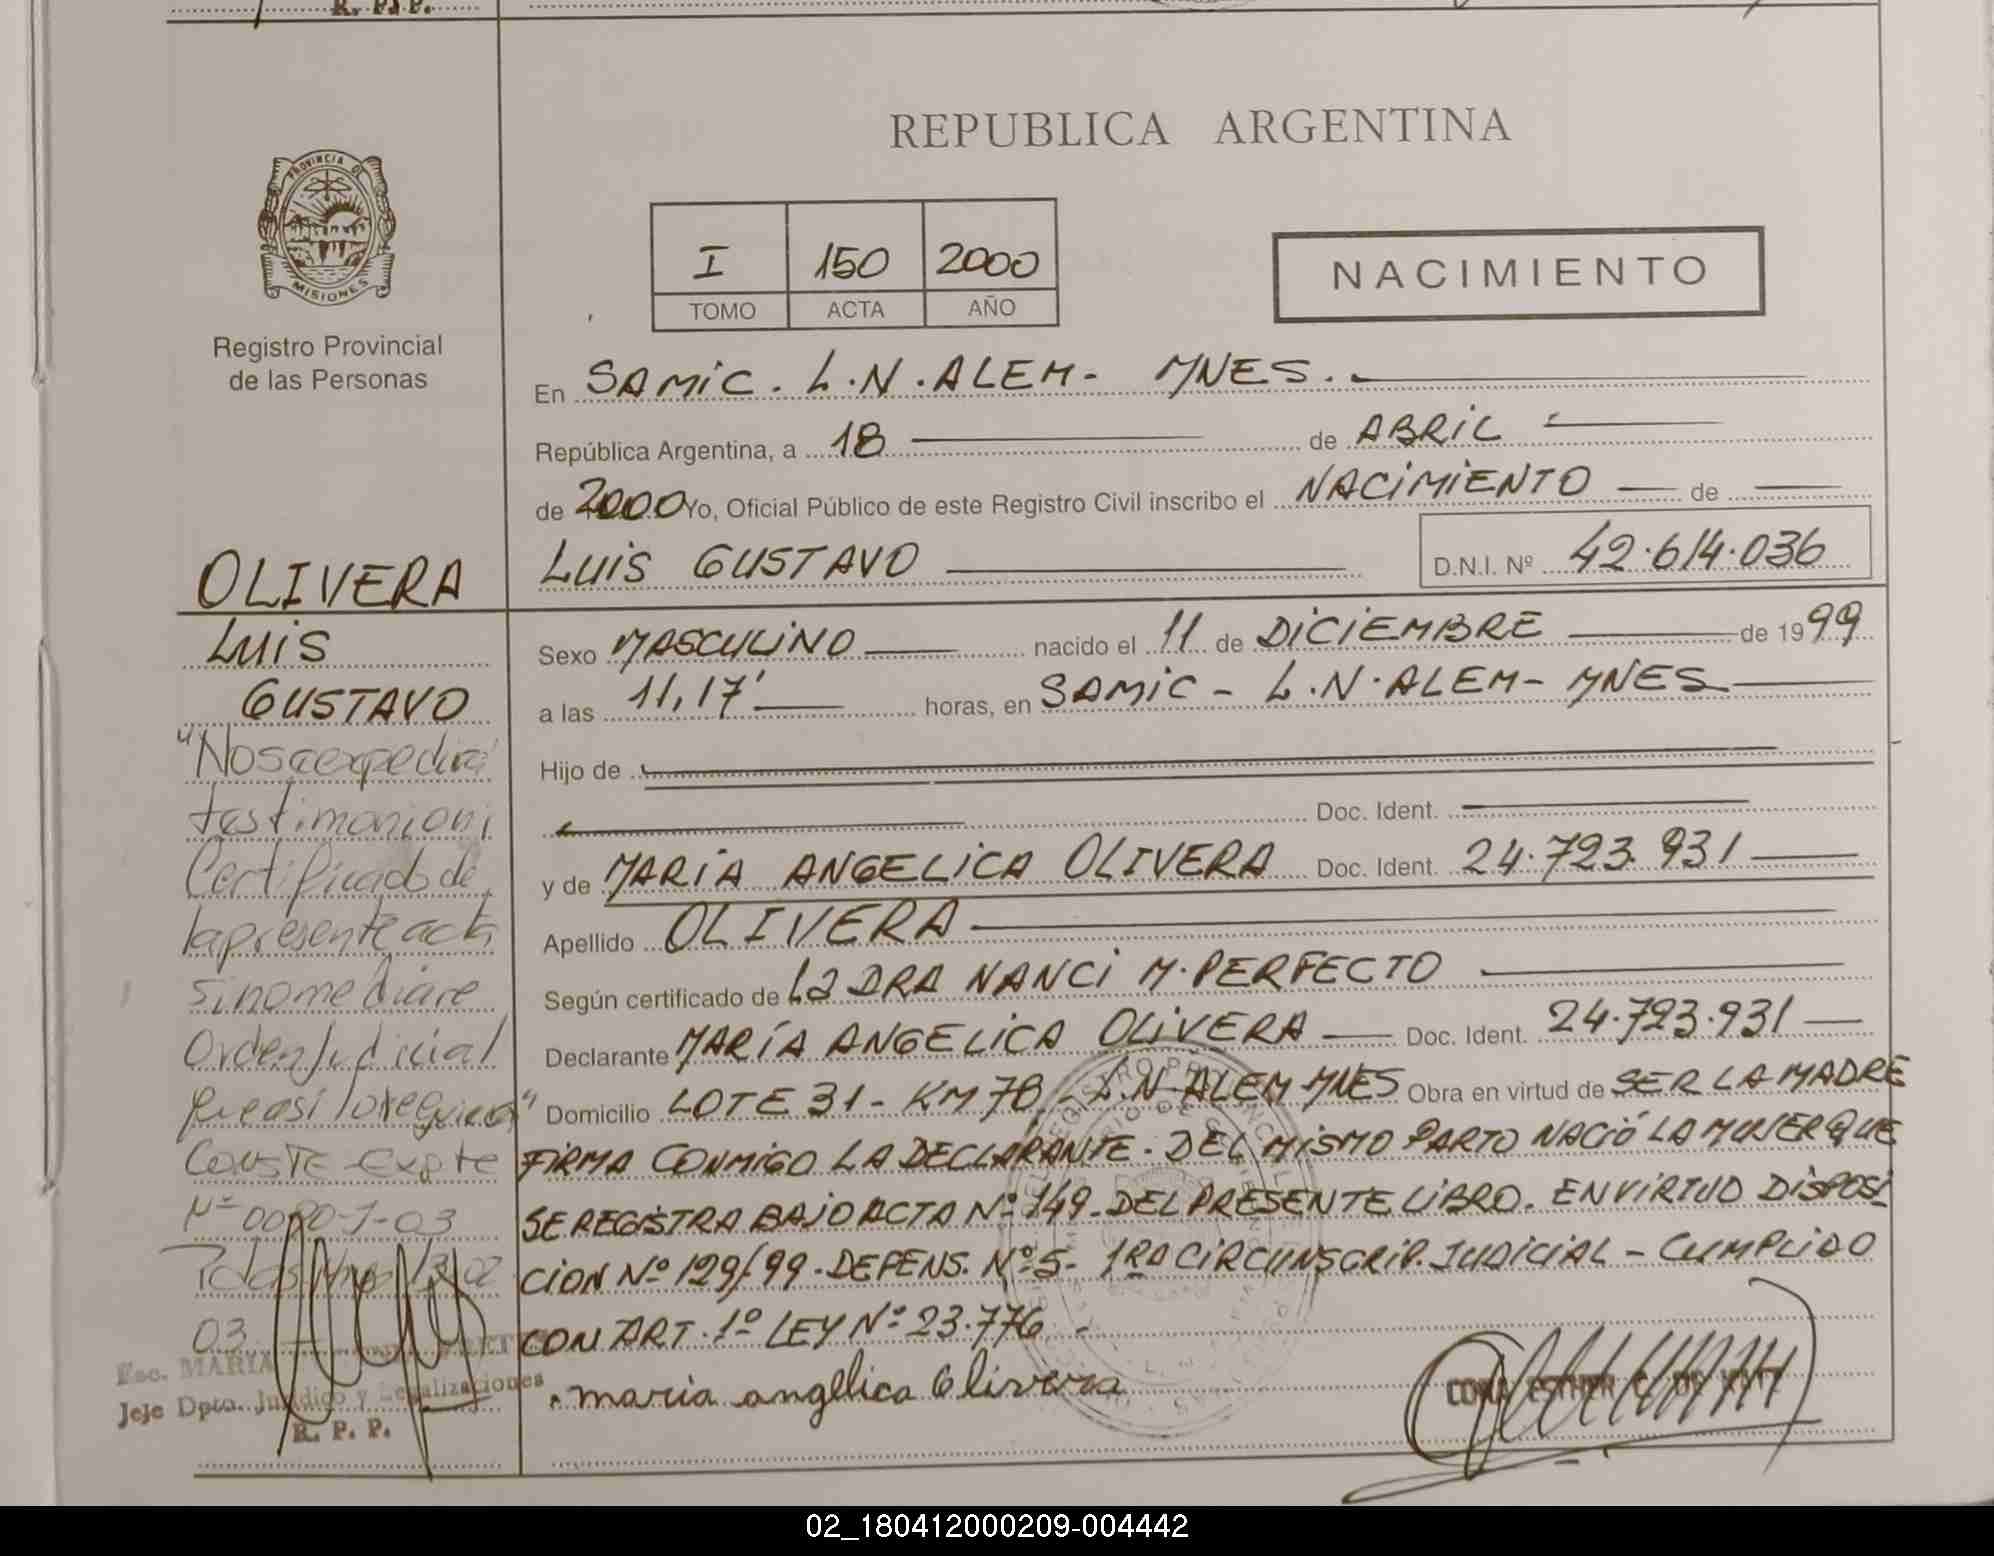 R. P. P.
REPUBLICA ARGENTINA
PROVINCIA DE
MISIONES
Registro Provincial
de las Personas
I 150 2000
TOMO ACTA AÑO
NACIMIENTO
En SAMIC. L.N.ALEM- MNES.
República Argentina, a 18 de ABRIL
de 2000 Yo, Oficial Público de este Registro Civil inscribo el NACIMIENTO de
LUIS GUSTAVO D.N.I. Nº 42.614.036
OLIVERA
LUIS
GUSTAVO
"No se expedirá
testimonio ni
Certificado de
la presente acta
si no mediare
Orden Judicial
que asi lo requiera"
Conste Expte
Nº
03
Esc. MARIA
Jefe Dpto. Jurídico y Legalizaciones
R. P. P.
Sexo MASCULINO nacido el 11 de DICIEMBRE de 1999
a las 11,17' horas, en SAMIC - L.N.ALEM- MNES
Hijo de
Doc. Ident.
y de MARÍA ANGELICA OLIVERA Doc. Ident. 24.723.931
Apellido OLIVERA
Según certificado de La DRA NANCI M. PERFECTO
Declarante MARÍA ANGELICA OLIVERA Doc. Ident. 24.723.931
Domicilio LOTE 31- KM 78 - L.N ALEM MNES Obra en virtud de SER LA MADRE
FIRMA CONMIGO LA DECLARANTE. DEL MISMO PARTO NACIÓ LA MUJER QUE
SE REGISTRA BAJO ACTA Nº 149. DEL PRESENTE LIBRO. EN VIRTUD DISPOSI
CION Nº 129/99. DEFENS. Nº 5- 1RA CIRCUNSCRIP. JUDICIAL - CUMPLIDO
CON ART. 1º LEY Nº 23.776 -
maria angelica Olivera
02_180412000209-004442